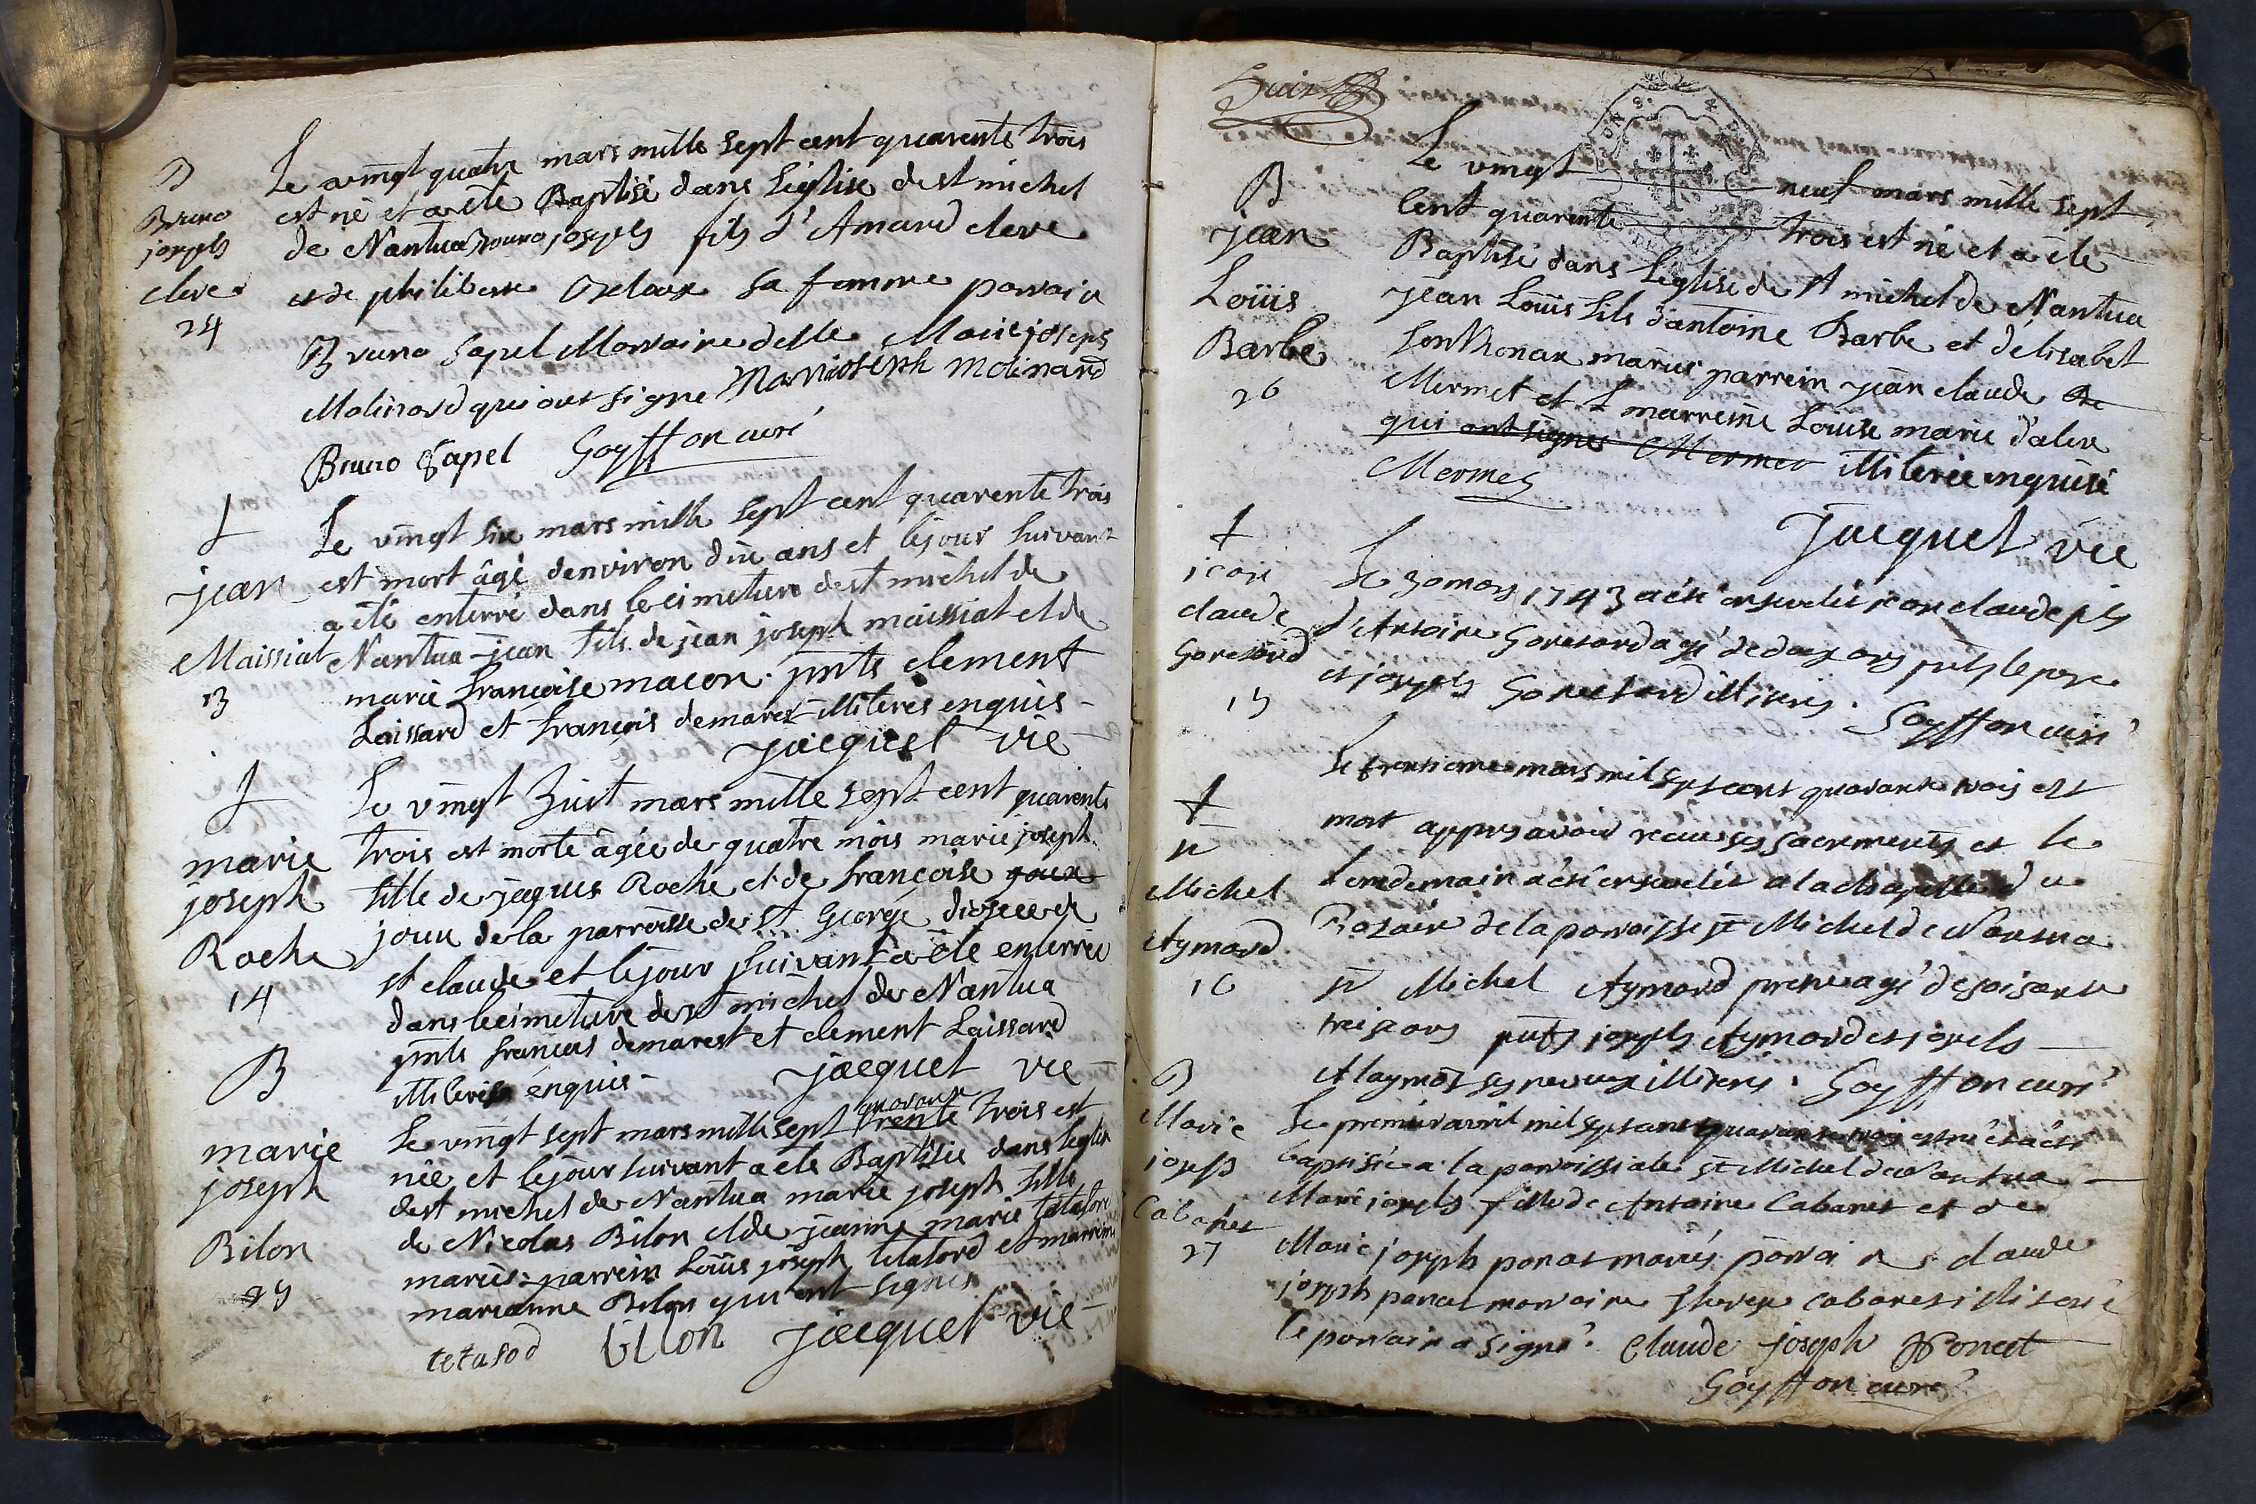 B
Bruno
joseph
cleve
24
Le vingt quatre mars mille sept cent quarente trois
est né et a été Baptisé dans L'eglise de st michel
de Nantua Bruno joseph fils d'Amard cleve
et de philiberte sa femme parrain
Bruno Sapel Marraine delle Marie joseph
Molinard qui ont signe Mariioseph molinard
Bruno Sapel Goyffon curé
†
jean
Maissiat
13
Le vingt six mars mille sept cent quarente trois
est mort âgé denviron dix ans et lejour suivant
a été enterré dans le cimeture de st michel de
Nantua jean fils de jean joseph maissiat et de
marie françoise macon. pnts clement
Laissard et françois demarest illiteres enquis
jacquet vic
†
marie
joseph
Roche
14
Le vingt huit mars mille sept cent quarente
trois est morte âgée de quatre mois marie joseph
fille de jaques Roche et de françoise goux
joux de la parroisse de st George diosece de
st claude et lejour suivant a été enterrée
dans le cimeture de st michel de Nantua
pnts françois demarest et clement Laissard
illiteres enquis jacquet vic
B
marie
joseph
Bilon
25
quarante
Le vingt sept mars mille sept trente trois est
née et lejour suivant a ete Baptisée dans leglise
de st michel de Nantua marie joseph fille
de Nicolas Bilon et de jeanne marie tetafort
mariés parrein Loüis joseph tetaford et marreine
marianne Bilon qui ont signes
tetafod Billon jacquet vic
huit
B
jean
Loüis
Barbe
26
Le vingt neuf mars mille sept
cent quarente trois est né et a été
Baptisé dans l'église de st michel de Nantua
jean Loüis fils d'antoine Barbe et d'elisabet
sonthonax mariés parrein jean claude
Mermet et marreine Loüise marie
qui ont signes Mermet illiterée enquise
Mermet
jacquet vic
†
jean
claude
Goretard
15
Le 30 mars 1743 a été enseveli jean claude fils
d'Antoine Goretard agé de deux ans pnts le pere
et joseph Goretard illiteres. Goyffon curé
†
sr
Michel
Aymard
16
Le trentieme mars mil sept cent quarante trois est
mort appres avoir receu ses sacrements et le
lendemain a été enseveli a la chapelle du
Rosaire de la parroisse st Michel de Nantua
sr Michel Aymard pretre agé de soisante
treise ans pnts joseph Aymard et joseph
ses neveux illiteres. Goyffon curé
B
Marie
joseph
Cabanet
27
Le premier avril mil sept cent quarante trois est né et a été
baptisée a la parroissiale st Michel de Nantua
Marie joseph fille de Antoine Cabanet et de
Marie joseph poncet mariés parrain claude
joseph poncet marraine cabanet
le parrain a signé. Claude joseph Poncet
Goyffon curé